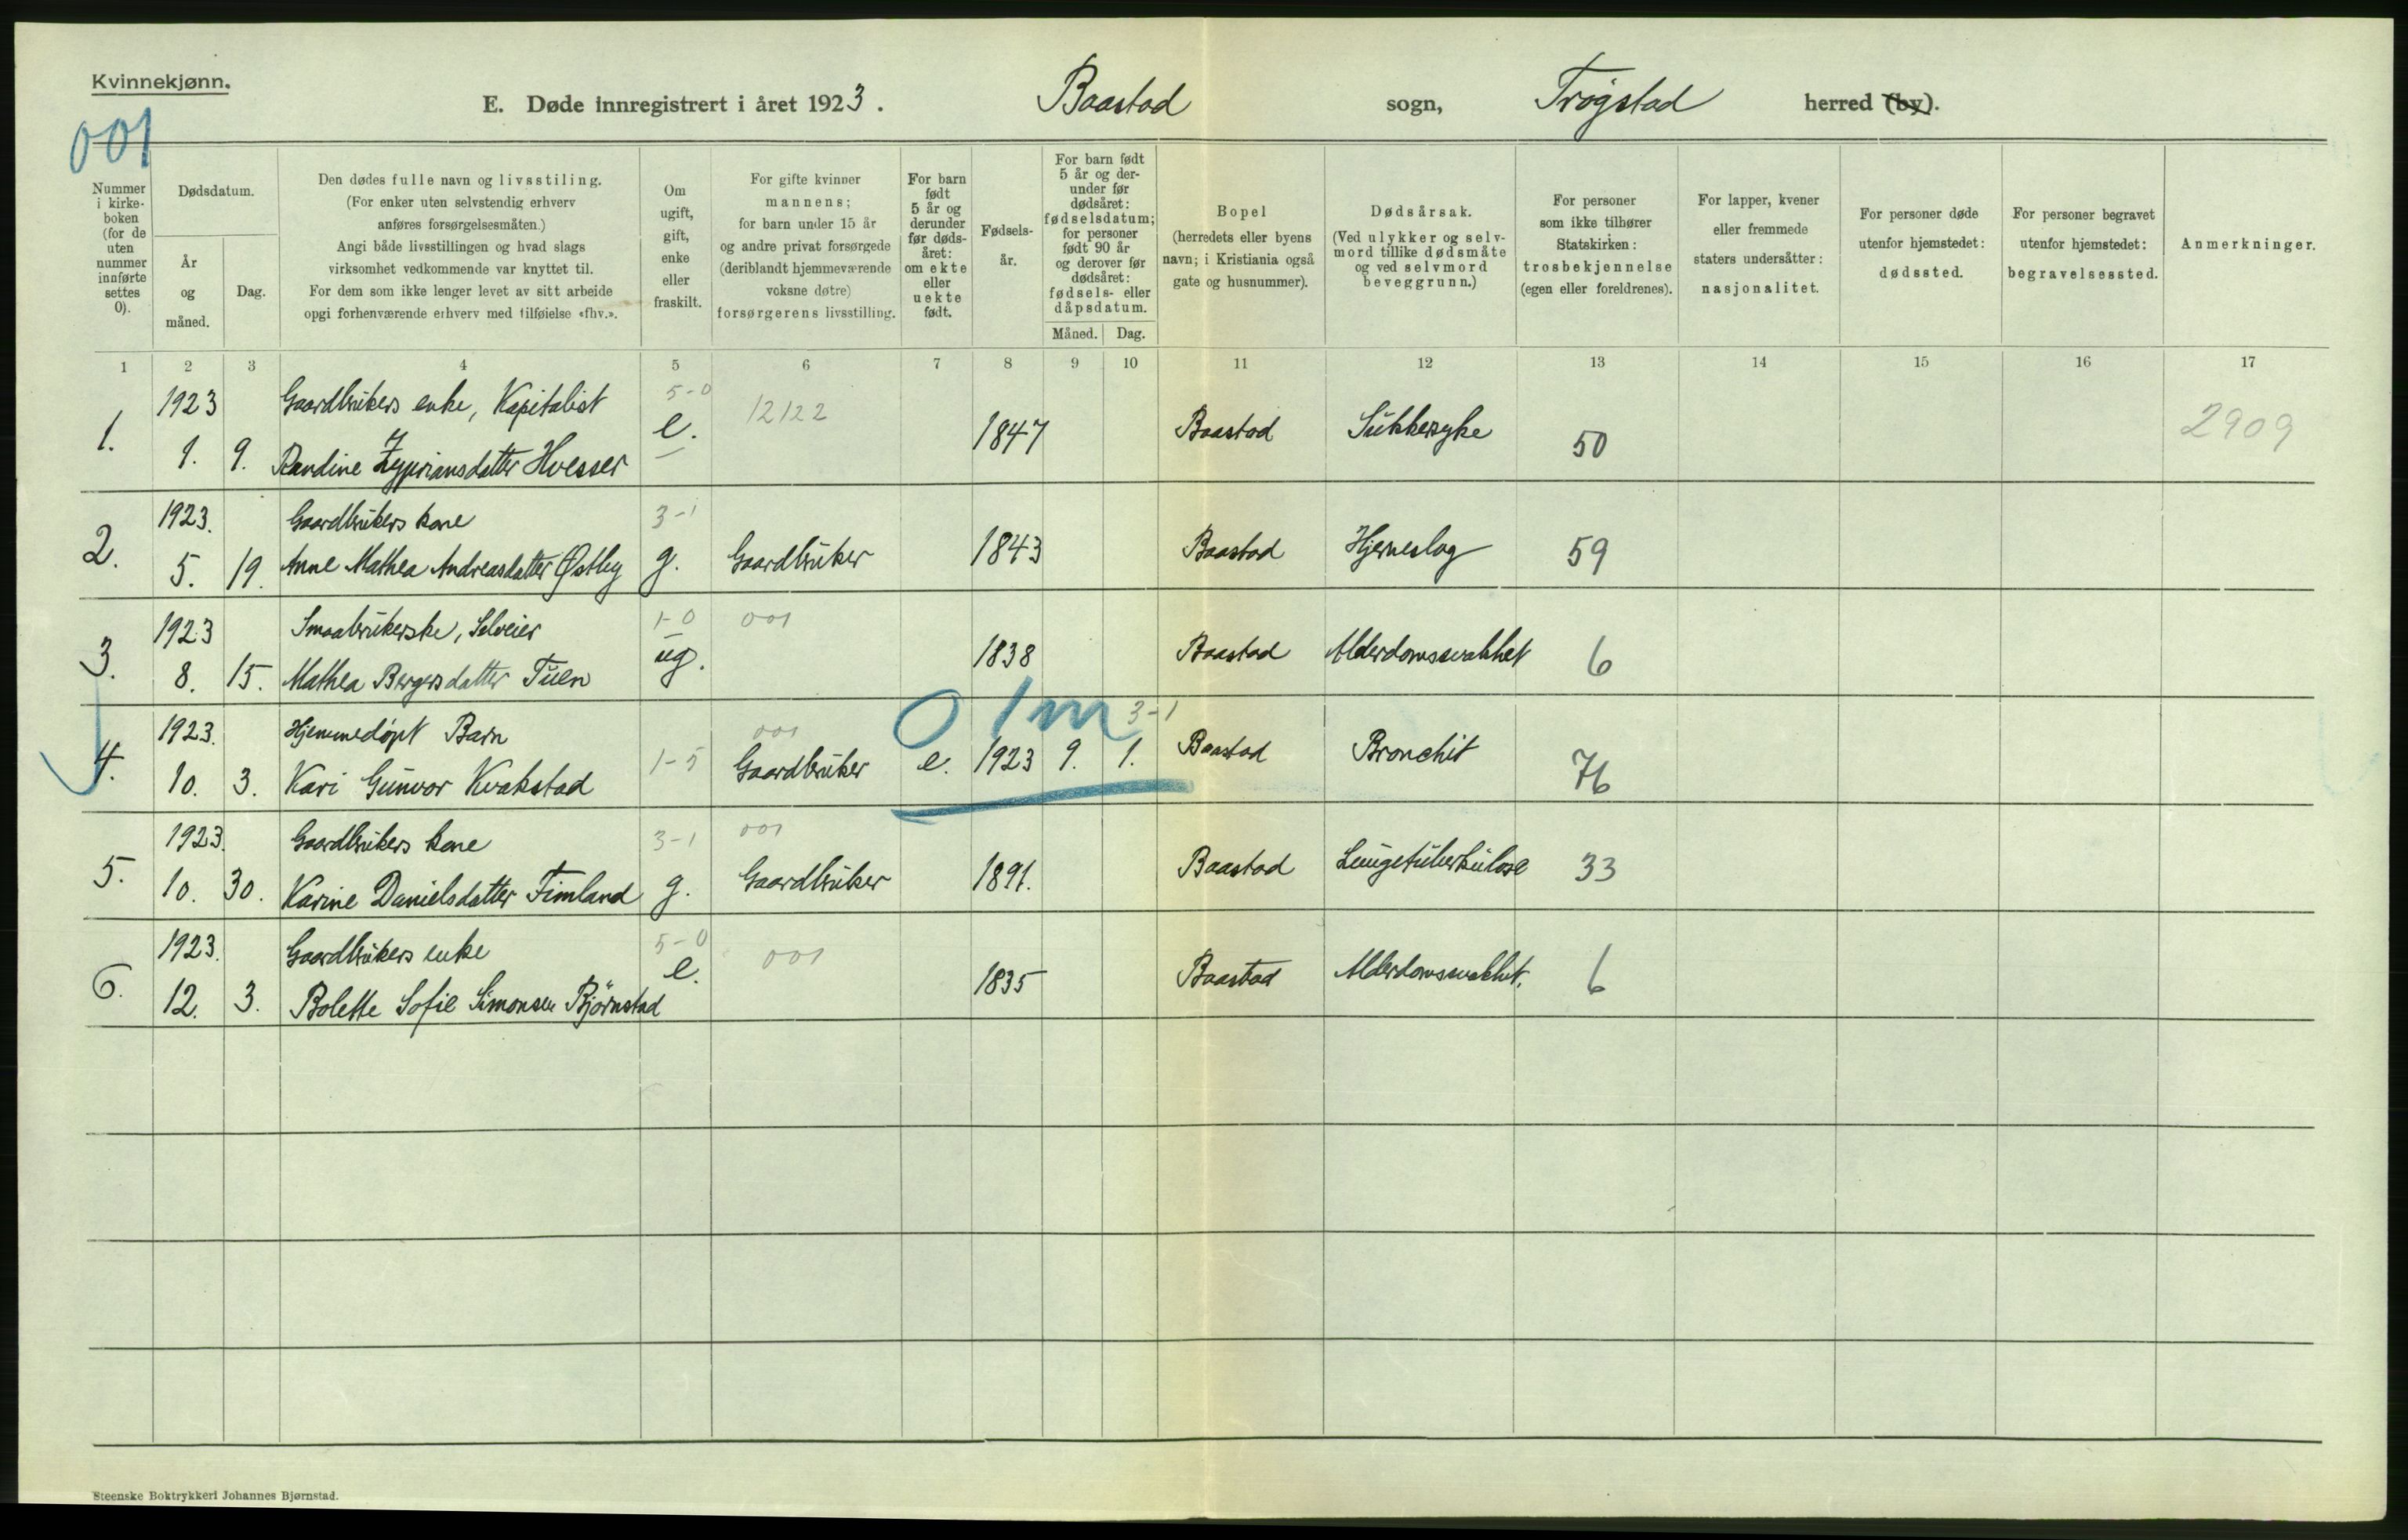 Kvinnekjønn.
E. Døde innregistrert i året 1923. Baastad sogn, Trøgstad herred (by).
001
Nummer i kirke-boken (for de uten nummer innførte settes 0).
Dødsdatum.
År og måned.
Dag.
Den dødes fulle navn og livsstiling.
(For enker uten selvstendig erhverv
anføres forsørgelsesmåten.)
Angi både livsstillingen og hvad slags
virksomhet vedkommende var knyttet til.
For dem som ikke lenger levet av sitt arbeide
opgi forhenværende erhverv med tilføielse «fhv.».
Om ugift, gift, enke eller fraskilt.
For gifte kvinner
mannens;
for barn under 15 år
og andre privat forsørgede
(deriblandt hjemmeværende
voksne døtre)
forsørgerens livsstilling.
For barn født 5 år og derunder før døds-året: om ekte eller uekte født.
Fødsels-år.
For barn født
5 år og der-
under før
dødsåret:
fødselsdatum;
for personer
født 90 år
og derover før
dødsåret:
fødsels- eller
dåpsdatum.
Måned. Dag.
Bopel
(herredets eller byens
navn; i Kristiania også
gate og husnummer).
Dødsårsak.
(Ved ulykker og selv-
mord tillike dødsmåte
og ved selvmord
beveggrunn.)
For personer
som ikke tilhører
Statskirken:
trosbekjennelse
(egen eller foreldrenes).
For lapper, kvener
eller fremmede
staters undersåtter:
nasjonalitet.
For personer døde
utenfor hjemstedet:
dødssted.
For personer begravet
utenfor hjemstedet:
begravelsessted.
Anmerkninger.
1 2 3 4 5 6 7 8 9 10 11 12 13 14 15 16 17
1923 Gaardbrukers enke, Kapitalist 5-0 12122 2909
1. 1. 9. Randine Zypriansdatter Hvesser e. 1847 Baastad Sukkersyke 50
1923. Gaardbrukers kone 3-1
2. 5. 19. Anne Mathea Andreasdatter Østby g. Gaardbruker 1843 Baastad Hjerneslag 59
1923 Smaabrukerske, Selveier 1-0 001
3. 8. 15. Mathea Bergersdatter Tuen ug. 1838 Baastad Alderdomssvakhet 6
1923. Hjemmedøpt Barn 001 0 1m 3-1
4. 10. 3. Kari Gunvor Kvakstad 1-5 Gaardbruker e. 1923 9. 1. Baastad Bronchit 76
1923. Gaardbrukers kone 3-1 001
5. 10. 30. Karine Danielsdatter Fimland g. Gaardbruker 1891. Baastad Lungetuberkulose 33
1923. Gaardbrukers enke 5-0 001
6. 12. 3. Bolette Sofie Simonsen Bjørnstad e. 1835 Baastad Alderdomssvakhet. 6
Steenske Boktrykkeri Johannes Bjørnstad.